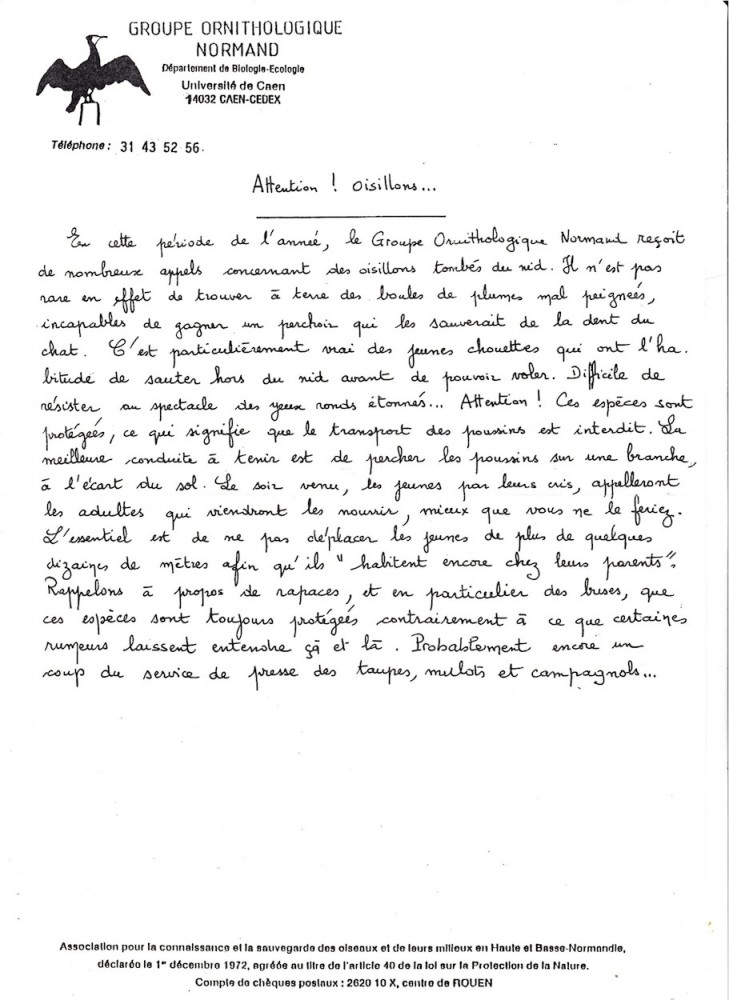 GROUPE ORNITHOLOGIQUE
NORMAND
Département de Biologie-Ecologie
Université de Caen
14032 CAEN-CEDEX
Téléphone : 31 43 52 56.
Attention ! Oisillons...
En cette période de l'année, le Groupe Ornithologique Normand reçoit
de nombreux appels concernant des oisillons tombés du nid. Il n'est pas
rare en effet de trouver à terre des boules de plumes mal peignées,
incapables de gagner un perchoir qui les sauverait de la dent du
chat. C'est particulièrement vrai des jeunes chouettes qui ont l'ha.
bitude de sauter hors du nid avant de pouvoir voler. Difficile de
résister au spectacle des yeux ronds étonnés... Attention ! Ces espèces sont
protégées, ce qui signifie que le transport des poussins est interdit. La
meilleure conduite à tenir est de percher les poussins sur une branche,
à l'écart du sol. Le soir venu, les jeunes par leurs cris, appelleront
les adultes qui viendront les nourrir, mieux que vous ne le feriez.
L'essentiel est de ne pas déplacer les jeunes de plus de quelques
dizaines de mètres afin qu'ils "habitent encore chez leurs parents".
Rappelons à propos de rapaces, et en particulier des buses, que
ces espèces sont toujours protégées contrairement à ce que certaines
rumeurs laissent entendre çà et là. Probablement encore un
coup du service de presse des taupes, mulots et campagnols...
Association pour la connaissance et la sauvegarde des oiseaux et de leurs milieux en Haute et Basse-Normandie,
déclarée le 1er décembre 1972, agréée au titre de l'article 40 de la loi sur la Protection de la Nature.
Compte de chèques postaux : 2620 10 X, centre de ROUEN